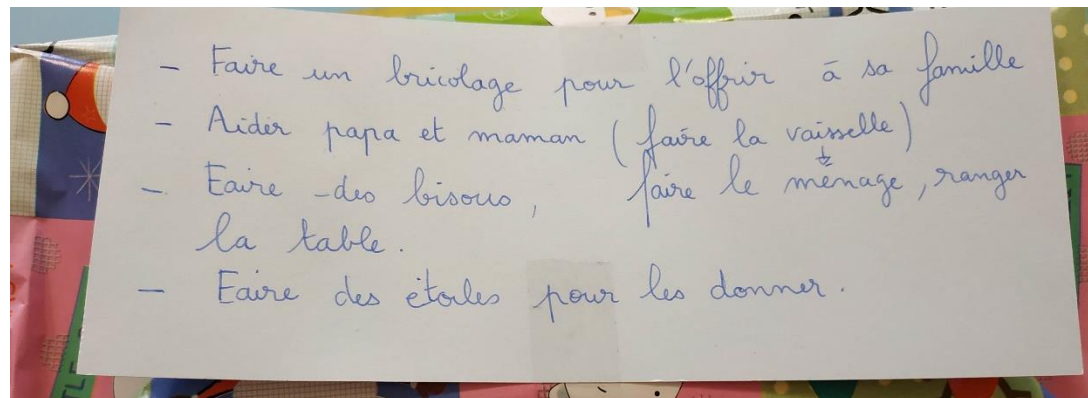 - Faire un bricolage pour l'offrir à sa famille
- Aider papa et maman (faire la vaisselle)
- Faire des bisous, faire le ménage, ranger
la table.
- Faire des étoiles pour les donner.